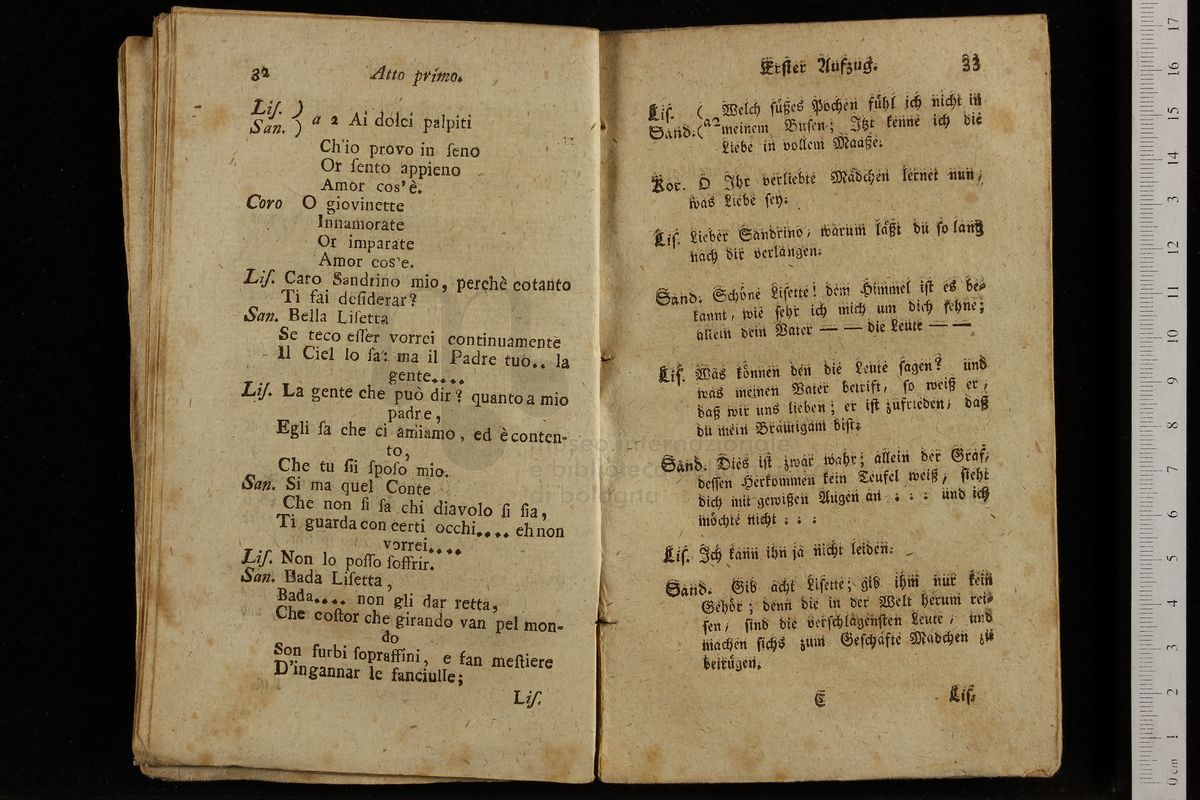 32 Atto primo.
Liſ. )
San. ) a 2 Ai dolci palpiti
Ch'io provo in ſeno
Or ſento appieno
Amor cos'è.
Coro O giovinette
Innamorate
Or imparate
Amor cos'e.
Liſ. Caro Sandrino mio, perchè cotanto
Ti fai deſiderar?
San. Bella Liſetta
Se teco eſſer vorrei continuamente
Il Ciel lo ſa: ma il Padre tuo.. la
gente....
Liſ. La gente che può dir? quanto a mio
padre,
Egli ſa che ci amiamo, ed è conten-
to,
Che tu ſii ſpoſo mio.
San. Si ma quel Conte
Che non ſi ſa chi diavolo ſi ſia,
Ti guarda con certi occhi.... eh non
vorrei....
Liſ. Non lo poſſo ſoffrir.
San. Bada Liſetta,
Bada.... non gli dar retta,
Che coſtor che girando van pel mon-
do
Son furbi ſopraffini, e fan meſtiere
D'ingannar le fanciulle;
Liſ.
Erſter Aufzug. 33
Liſ. ( Welch ſüßes Pochen fühl ich nicht in
Sand. ( a2 meinem Buſen; Itzt kenne ich die
Liebe in vollem Maaße.
Kor. O Ihr verliebte Mädchen lernet nun,
was Liebe ſey.
Liſ. Lieber Sandrino, warum läßt du ſo lang
nach dir verlangen.
Sand. Schöne Liſette! dem Himmel iſt es be-
kannt, wie ſehr ich mich um dich ſehne;
allein dein Vater — — die Leute — —
Liſ. Was können den die Leute ſagen? und
was meinen Vater betrift, ſo weiß er,
daß wir uns lieben; er iſt zufrieden, daß
du mein Bräutigam biſt.
Sand. Dies iſt zwar wahr; allein der Graf,
deſſen Herkommen kein Teufel weiß, ſieht
dich mit gewißen Augen an : : : und ich
möchte nicht : : :
Liſ. Ich kann ihn ja nicht leiden.
Sand. Gib acht Liſette; gib ihm nur kein
Gehör; denn die in der Welt herum rei-
ſen, ſind die verſchlagenſten Leute, und
machen ſichs zum Geſchäfte Mädchen zu
betrügen.
C Liſ.
museo internazionale
e biblioteca
di bologna